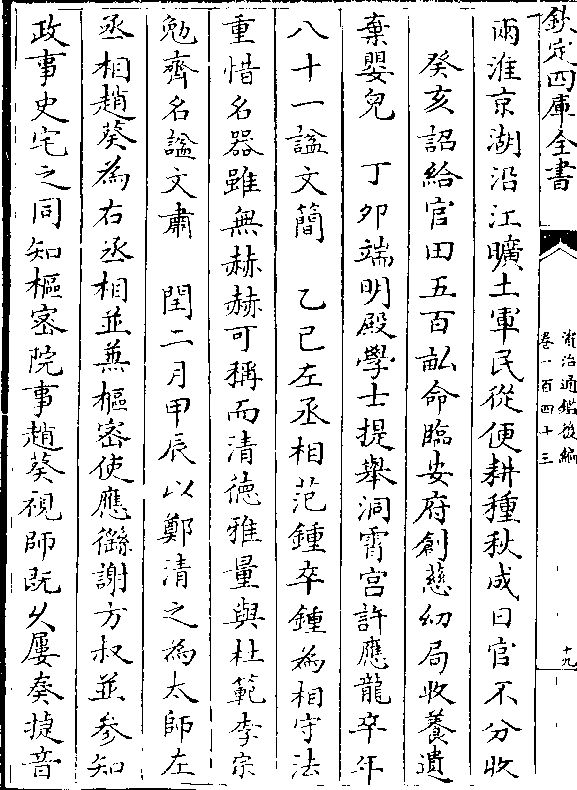 欽定四庫全書
資治通鑑後編
卷一百四十三
十九
兩淮京湖沿江曠土軍民從便耕種秋成日官不分收
癸亥詔給官田五百畝命臨安府創慈幼局收養遺
棄嬰兒　丁卯端明殿學士提舉洞霄宮許應龍卒年
八十一諡文簡　乙巳左丞相范鍾卒鍾為相守法
重惜名器雖無赫赫可稱而清德雅量與杜範李宗
勉齊名諡文肅　閏二月甲辰以鄭清之為太師左
丞相趙葵為右丞相並兼樞密使應㒡謝方叔並參知
政事史宅之同知樞密院事趙葵視師既久屢奏捷音